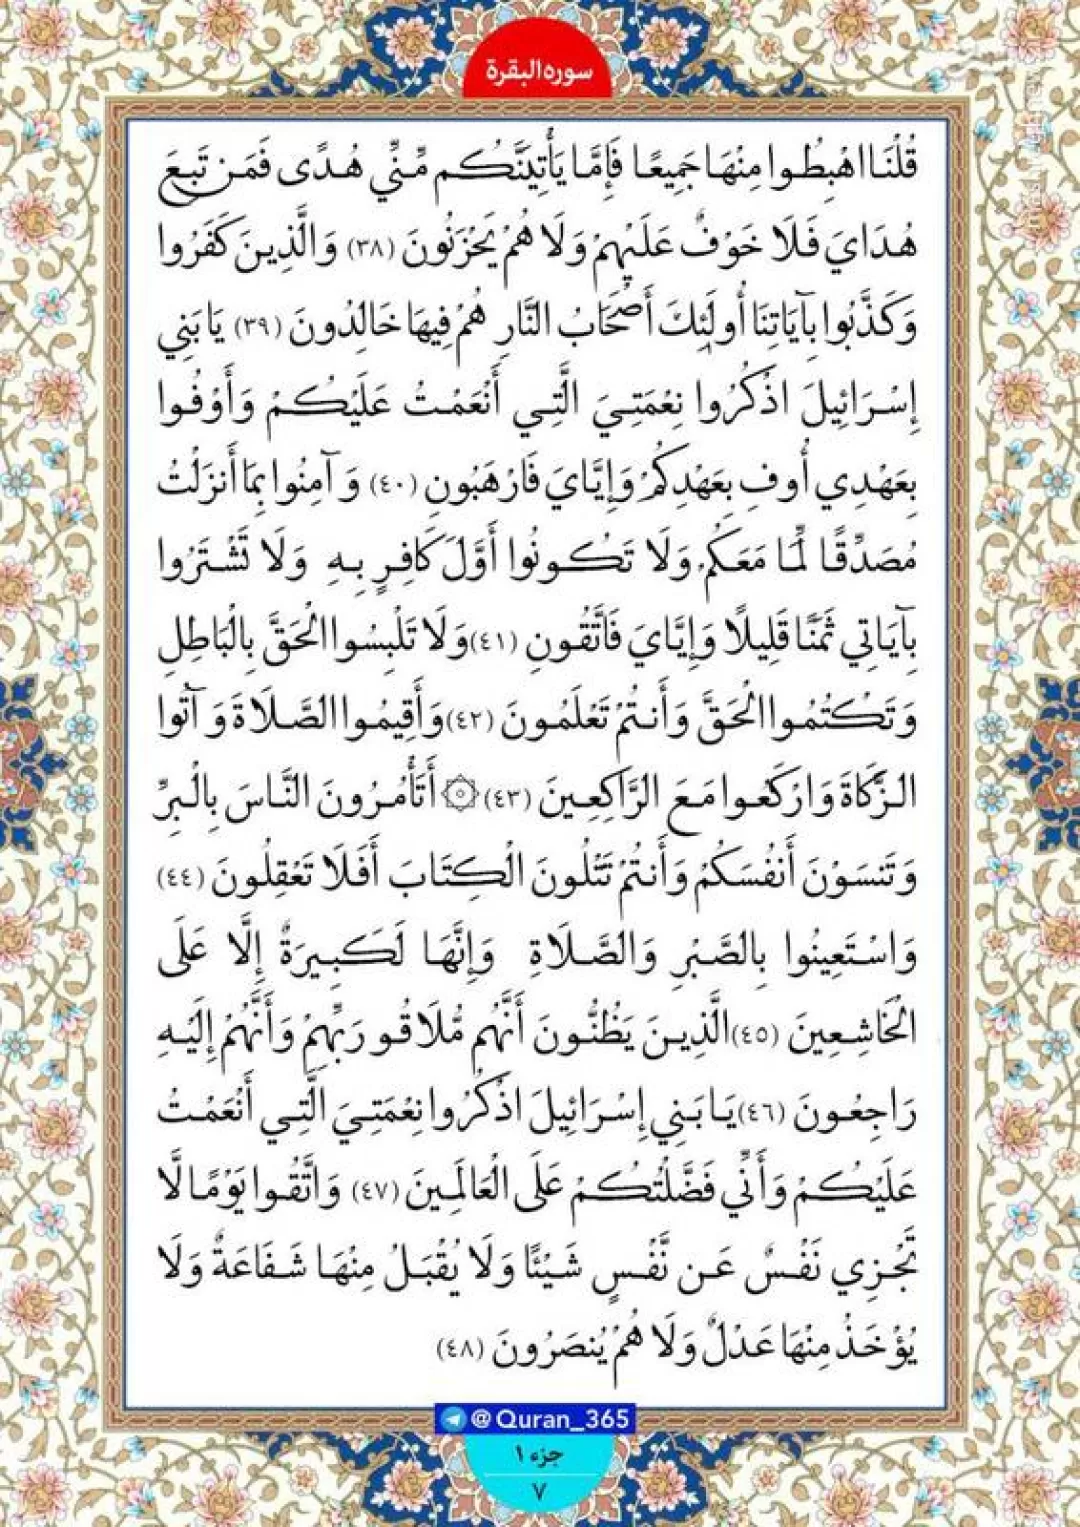 سوره البقرة
قُلْنَا اهْبِطُوا مِنْهَا جَمِيعًا فَإِمَّا يَأْتِيَنَّكُم مِّنِّي هُدًى فَمَن تَبِعَ
هُدَايَ فَلَا خَوْفٌ عَلَيْهِمْ وَلَا هُمْ يَحْزَنُونَ (٣٨) وَالَّذِينَ كَفَرُوا
وَكَذَّبُوا بِآيَاتِنَا أُولَئِكَ أَصْحَابُ النَّارِ هُمْ فِيهَا خَالِدُونَ (٣٩) يَا بَنِي
إِسْرَائِيلَ اذْكُرُوا نِعْمَتِيَ الَّتِي أَنْعَمْتُ عَلَيْكُمْ وَأَوْفُوا
بِعَهْدِي أُوفِ بِعَهْدِكُمْ وَإِيَّايَ فَارْهَبُونِ (٤٠) وَآمِنُوا بِمَا أَنزَلْتُ
مُصَدِّقًا لِّمَا مَعَكُمْ وَلَا تَكُونُوا أَوَّلَ كَافِرٍ بِهِ وَلَا تَشْتَرُوا
بِآيَاتِي ثَمَنًا قَلِيلًا وَإِيَّايَ فَاتَّقُونِ (٤١) وَلَا تَلْبِسُوا الْحَقَّ بِالْبَاطِلِ
وَتَكْتُمُوا الْحَقَّ وَأَنتُمْ تَعْلَمُونَ (٤٢) وَأَقِيمُوا الصَّلَاةَ وَآتُوا
الزَّكَاةَ وَارْكَعُوا مَعَ الرَّاكِعِينَ (٤٣) ۞ أَتَأْمُرُونَ النَّاسَ بِالْبِرِّ
وَتَنسَوْنَ أَنفُسَكُمْ وَأَنتُمْ تَتْلُونَ الْكِتَابَ أَفَلَا تَعْقِلُونَ (٤٤)
وَاسْتَعِينُوا بِالصَّبْرِ وَالصَّلَاةِ وَإِنَّهَا لَكَبِيرَةٌ إِلَّا عَلَى
الْخَاشِعِينَ (٤٥) الَّذِينَ يَظُنُّونَ أَنَّهُم مُّلَاقُو رَبِّهِمْ وَأَنَّهُمْ إِلَيْهِ
رَاجِعُونَ (٤٦) يَا بَنِي إِسْرَائِيلَ اذْكُرُوا نِعْمَتِيَ الَّتِي أَنْعَمْتُ
عَلَيْكُمْ وَأَنِّي فَضَّلْتُكُمْ عَلَى الْعَالَمِينَ (٤٧) وَاتَّقُوا يَوْمًا لَّا
تَجْزِي نَفْسٌ عَن نَّفْسٍ شَيْئًا وَلَا يُقْبَلُ مِنْهَا شَفَاعَةٌ وَلَا
يُؤْخَذُ مِنْهَا عَدْلٌ وَلَا هُمْ يُنصَرُونَ (٤٨)
@Quran_365
جزء ١
٧